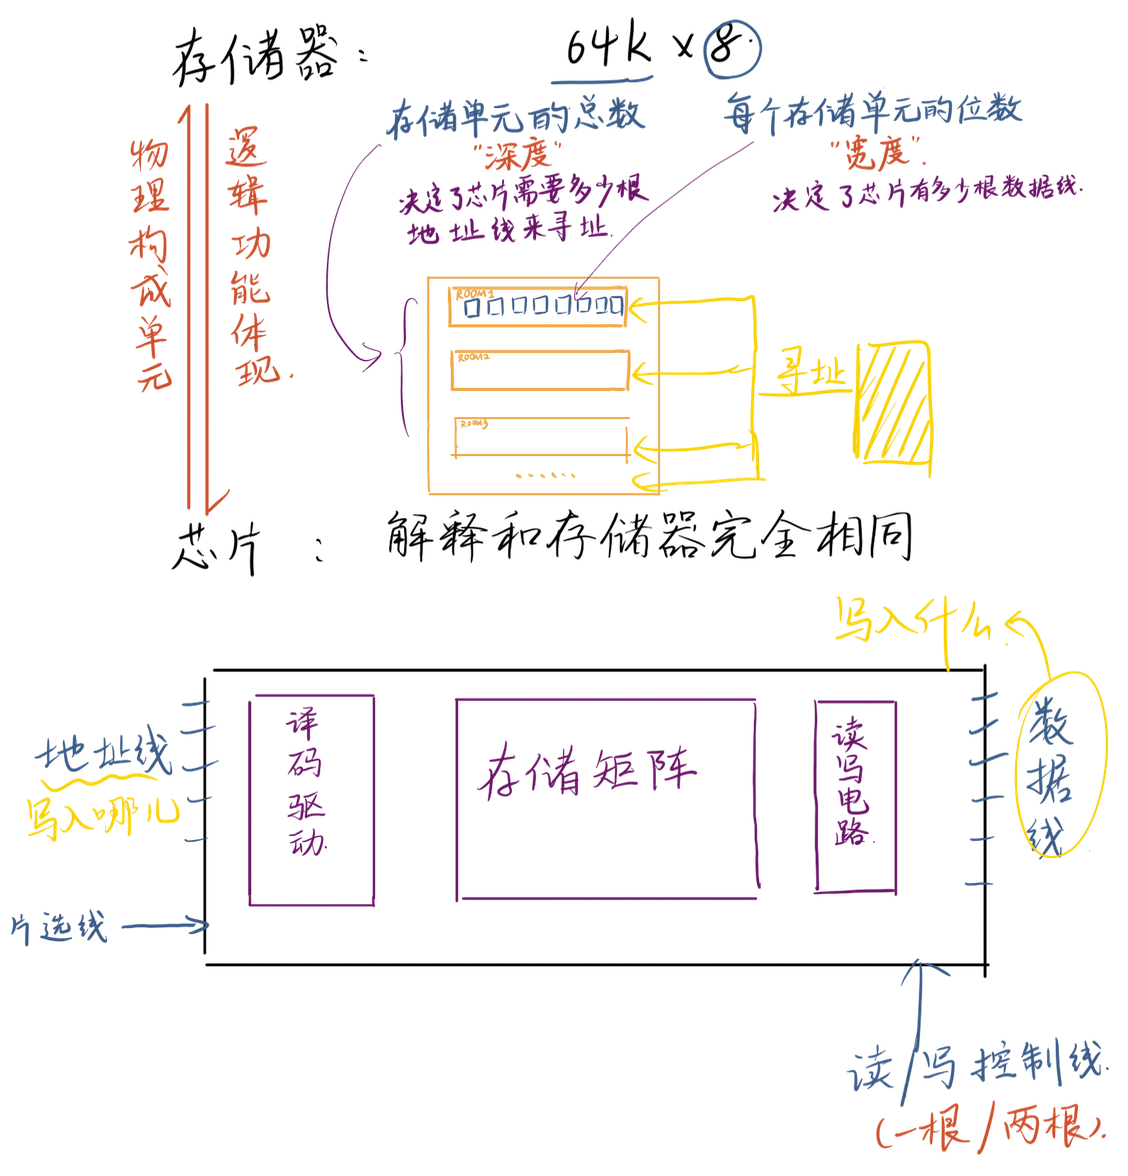 存储器： 64K × 8
存储单元的总数
"深度"
决定了芯片需要多少根
地址线来寻址.
每个存储单元的位数
"宽度".
决定了芯片有多少根数据线.
物理构成单元
逻辑功能体现.
ROOM1
ROOM2
ROOM3
......
寻址
芯片： 解释和存储器完全相同
写入什么
地址线
写入哪儿
片选线
译码驱动.
存储矩阵
读写电路.
数据线
读/写控制线.
(一根/两根).